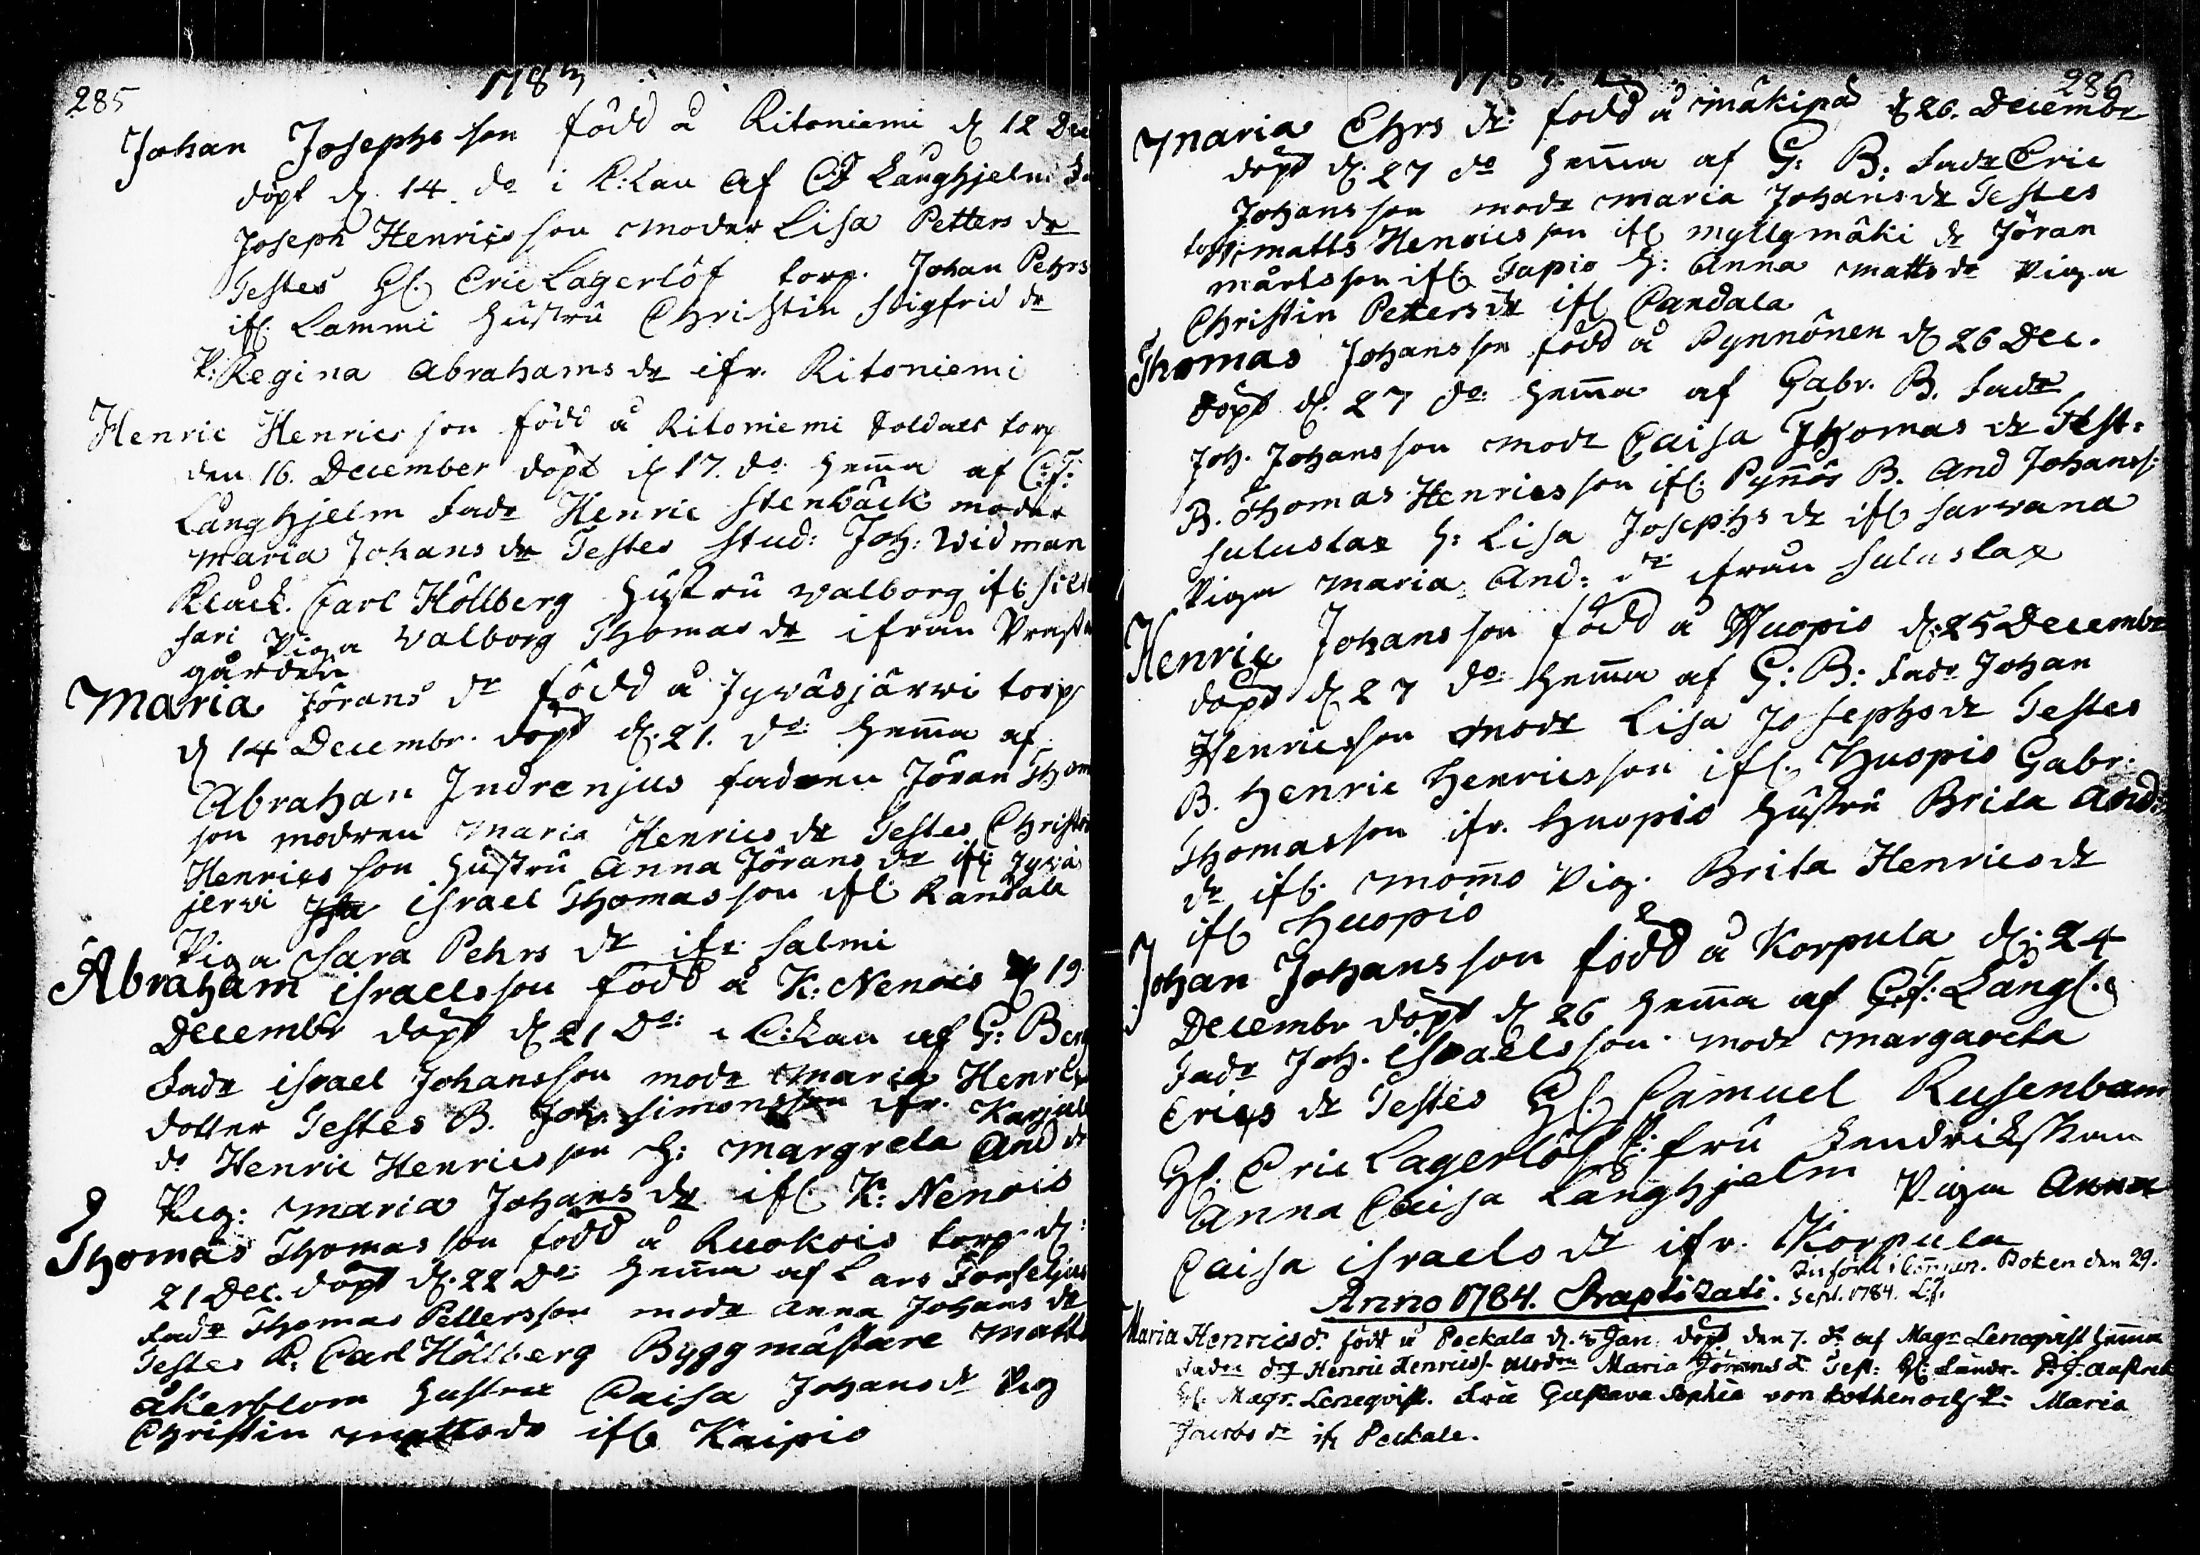 285
1783
Johan Josephs son född å Ritoniemi d. 12 Dec
döpt d. 14 do i K:kan af C:F Långhjelm Fa
Joseph Henrics son Moder Lisa Petters dr
Testes H. Eric Lagerlöf torp. Johan Pehrs
ifr. Lammi hustru Christin Sigfrid dr
P: Regina Abrahams dr ifr. Ritoniemi
Henric Henrics son född å Ritoniemi Soldats torp
den 16. December döpt d. 17. do hem̄a af C:F:
Långhjelm Fadr Henric Stenbäck moder
Maria Johans dr Testes Stud: Joh: Widman
Klåck. Carl Höllberg hustru Valborg ifr.
sari Piga Valborg Thomas dr ifrån Prest
gården
Maria Jörans dr född å Jywäsjärwi torp
d 14 Decembr. döpt d. 21. do: hem̄a af
Abraham Indrenjus fadren Jöran Thom
son modren Maria Henrics dr Testes Christ
Henrics son hustru Anna Jörans dr ifr. Jywäs
jerwi Israel Thomas son ifr. Kandala
Piga Sara Pehrs dr ifr. Salmi
Abraham israels son född å K: Nenois d 19
Decembr döpt d 21 Do: i K:kan af G: Berg
Fadr israel Johansson modr Maria Henrics
dotter Testes B. Joh. Simonsson ifr. Karjul
do Henric Henrics son H: Margreta And dr
Pig: Maria Johans dr ifr. K: Nenois
Thomas Thomas son född å Ruokois torp d:
21 Dec. döpt d. 22 Do: hem̄a af Lars Forseljus
Fadr Thomas Petterson modr Anna Johans dr
Testes K. Carl Höllberg Byggmästare Matts
Åkerblom hustru Caisa Johans dr Pig
Christin Mattsdr ifr. Kaipio
286
Maria Ehrs dr: född å Mäkipä d 26. Decembr
döpt d. 27 do hem̄a af G: B: Fadr Eric
Johans son modr Maria Johans dr Testes
torp: Matts Henrics son ifr. Myllymäki dr Jöran
Mårtsson ifr. Tapio H: Anna Matts dr Piga
Christin Petters dr ifr. Candala
Thomas Johans son född å Pynnönen d 26 Dec.
döpt d. 27 do: hem̄a af Gabr. B. Fadr
Joh. Johans son Modr Caisa Thomas dr Test:
B. Thomas Henrics son ifr. Pyn̄ös B. And Johanss:
Suluslax H: Lisa Josephs dr ifr. Sarvana
Piga Maria And: dr ifrån Suluslax
Henric Johans son född å Huopio d: 25 Decembr
döpt d 27 do: hem̄a af G: B: Fadr Johan
Henricsson Modr Lisa Josephs dr Testes
B. Henric Henricsson ifr. Huopio Gabr.
Thomasson ifr. Huopio Hustru Brita And:
dr ifr. Mom̄o Pig. Brita Henrics dr
ifr. Huopio
Johan Johans son född å Korpula d: 24
Decembr döpt d 26 hem̄a af C:F: Långh.
Fadr Joh. Israels son modr Margareta
Erics dr Testes H. Samuel Rusenbam
H. Eric Lagerlöf fru Lendrikskan
Anna Caisa Långhjelm Piga Anna
Caisa israels dr ifr. Korpula
Införd i Com̄un. Boken den 29.
Sept. 1784. L:f.
Anno 1784. Baptizati.
Maria Henricsdr. född å Peckala d. 5 Jan. döpt den 7. do af Magr Lenqvist hem̄a
Fader Henric Henricss. Modren Maria Jörans dr Test: H:
H: Magr. Lenqvist. Fru Gustava Sophia von Rothen P: Maria
Jacobs dr ifr. Peckala.